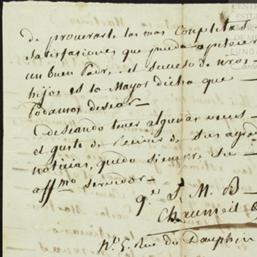 de procurarle las mas completas
satisfaciones que pueda apetecer
un buen Padre, el suceso de nros
hijos es la Mayor dicha que
Podamos desear.
Deseando tener algunas veces
el gusto de recivir de sus
noticias, quedo siempre su
affmo servidor
q. s. M. B.
Nº 5. Rue du Dauphin